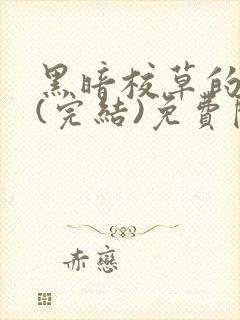 黑暗校草的
(完結)免費
赤戀